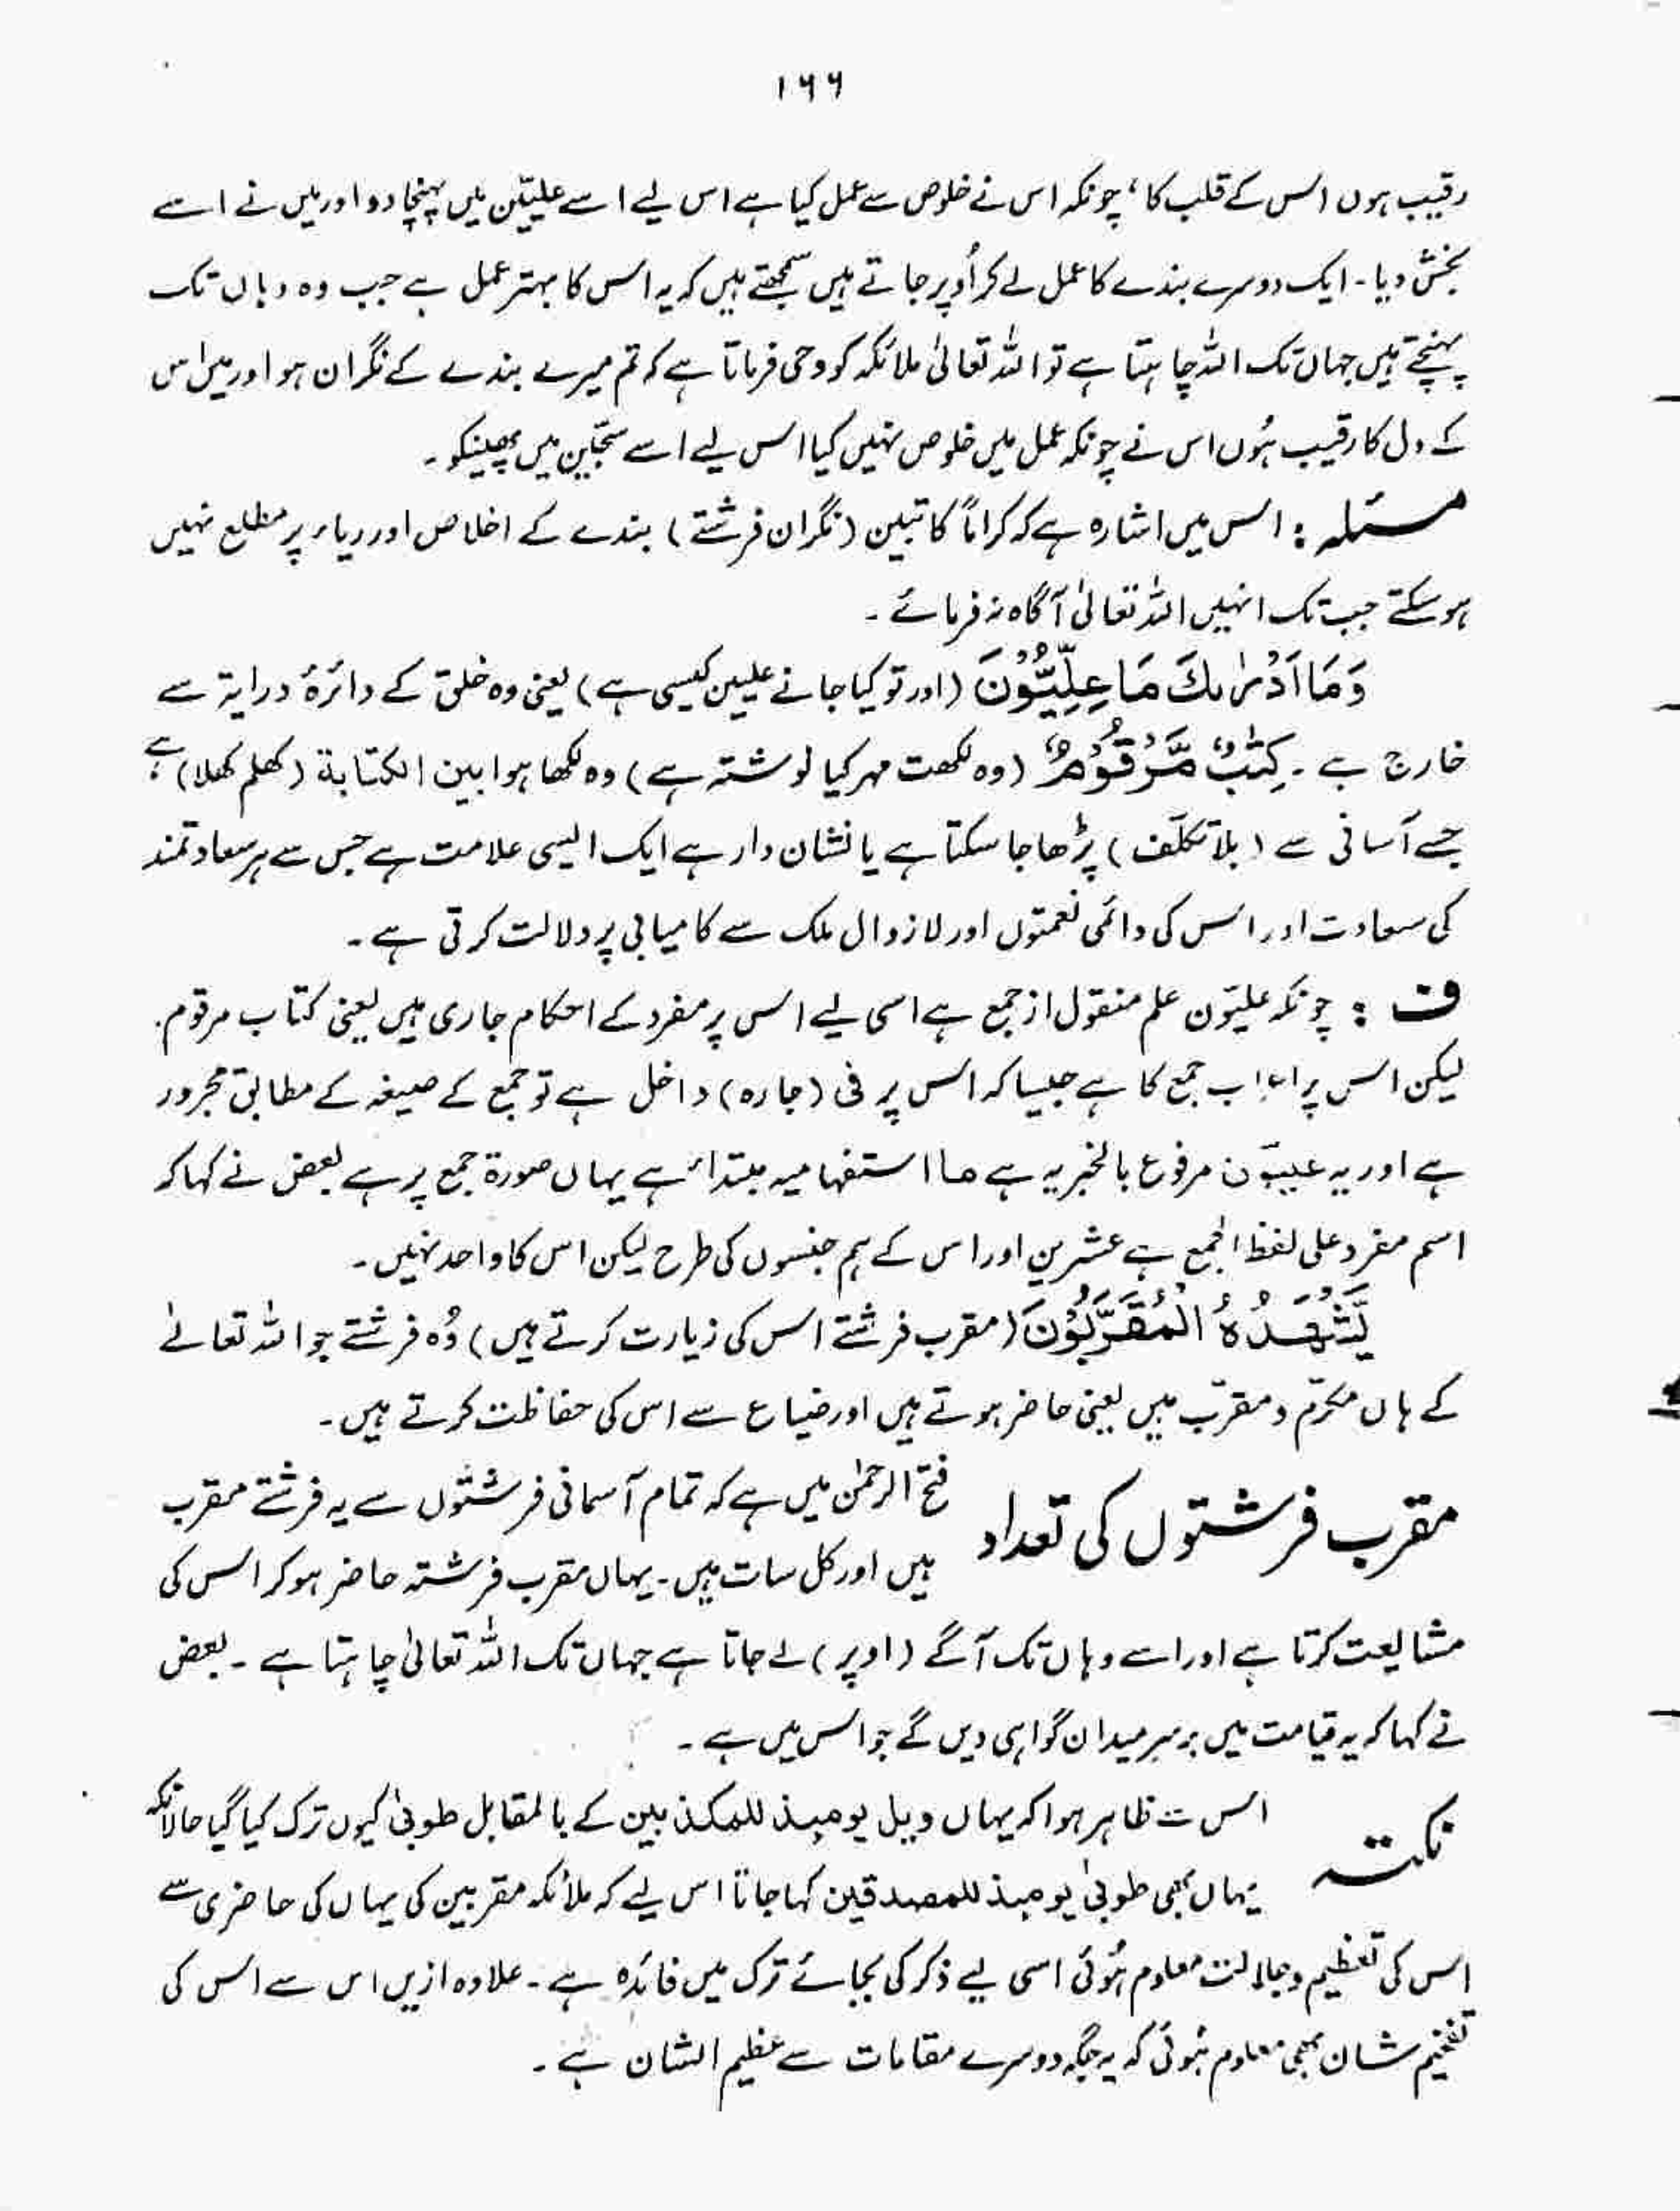 ۱۶۶
رقیب ہوں اس کے قلب کا، چونکہ اس نے خلوص سے عمل کیا ہے اس لیے اسے علیّین میں پہنچا دو اور میں نے اسے
بخش دیا۔ ایک دوسرے بندے کا عمل لے کر اُوپر جاتے ہیں سمجھتے ہیں کہ یہ اس کا بہتر عمل ہے جب وہ وہاں تک
پہنچتے ہیں جہاں تک اللہ چاہتا ہے تو اللہ تعالیٰ ملائکہ کو وحی فرماتا ہے کہ تم میرے بندے کے نگران ہو اور میں اس
کے دل کا رقیب ہُوں اس نے چونکہ عمل میں خلوص نہیں کیا اس لیے اسے سجّین میں پھینکو۔
مسئلہ : اس میں اشارہ ہے کہ کراماً کاتبین (نگران فرشتے) بندے کے اخلاص اور ریاء پر مطلع نہیں
ہو سکتے جب تک انہیں اللہ تعالیٰ آگاہ نہ فرمائے۔
وَمَا اَدْرٰىكَ مَا عِلِّيُّوْنَ (اور تو کیا جانے علیین کیسی ہے) یعنی وہ خلق کے دائرۂ درایۃ سے
خارج ہے۔ كِتٰبٌ مَّرْقُوْمٌ (وہ لکھت مہر کیا نوشتہ ہے) وہ لکھا ہوا بین الکتابۃ (کھلم کھلا) ہے
جسے آسانی سے (بلا تکلّف) پڑھا جا سکتا ہے یا نشان دار ہے ایک ایسی علامت ہے جس سے ہر سعادتمند
کی سعادت اور اس کی دائمی نعمتوں اور لازوال ملک سے کامیابی پر دلالت کرتی ہے۔
ف : چونکہ علیّون علم منقول از جمع ہے اسی لیے اس پر مفرد کے احکام جاری ہیں یعنی کتاب مرقوم۔
لیکن اس پر اعراب جمع کا ہے جیسا کہ اس پر فی (جارہ) داخل ہے تو جمع کے صیغہ کے مطابق مجرور
ہے اور یہ علیّون مرفوع بالخبریہ ہے ما استفہامیہ مبتداء ہے یہاں صورۃ جمع پر ہے بعض نے کہا کہ
اسم مفرد علی لفظ الجمع ہے عشرین اور اس کے ہم جنسوں کی طرح لیکن اس کا واحد نہیں۔
يَّشْهَدُهُ الْمُقَرَّبُوْنَ (مقرب فرشتے اس کی زیارت کرتے ہیں) وُہ فرشتے جو اللہ تعالےٰ
کے ہاں مکرّم و مقرّب ہیں یعنی حاضر ہوتے ہیں اور ضیاع سے اس کی حفاظت کرتے ہیں۔
مقرب فرشتوں کی تعداد فتح الرحمٰن میں ہے کہ تمام آسمانی فرشتوں سے یہ فرشتے مقرب
ہیں اور کل سات ہیں۔ یہاں مقرب فرشتہ حاضر ہو کر اس کی
مشایعت کرتا ہے اور اسے وہاں تک آگے (اوپر) لے جاتا ہے جہاں تک اللہ تعالیٰ چاہتا ہے۔ بعض
نے کہا کہ یہ قیامت میں برسرِ میدان گواہی دیں گے جو اس میں ہے۔
نکتہ اس سے ظاہر ہوا کہ یہاں ویل یومیذ للمکذبین کے بالمقابل طوبیٰ کیوں ترک کیا گیا حالانکہ
یہاں بھی طوبیٰ یومیذ للمصدقین کہا جاتا اس لیے کہ ملائکہ مقربین کی یہاں کی حاضری سے
اس کی تعظیم و جلالت معلوم ہُوئی اسی لیے ذکر کی بجائے ترک میں فائدہ ہے۔ علاوہ ازیں اس سے اس کی
تفخیم شان بھی معلوم ہُوئی کہ یہ جگہ دوسرے مقامات سے عظیم الشان ہے۔